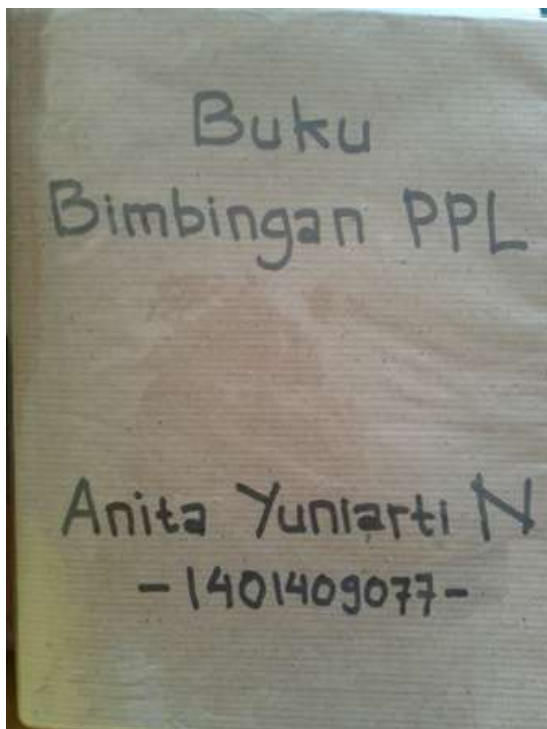 Buku
Bimbingan PPL
Anita Yuniarti N
-1401409077-